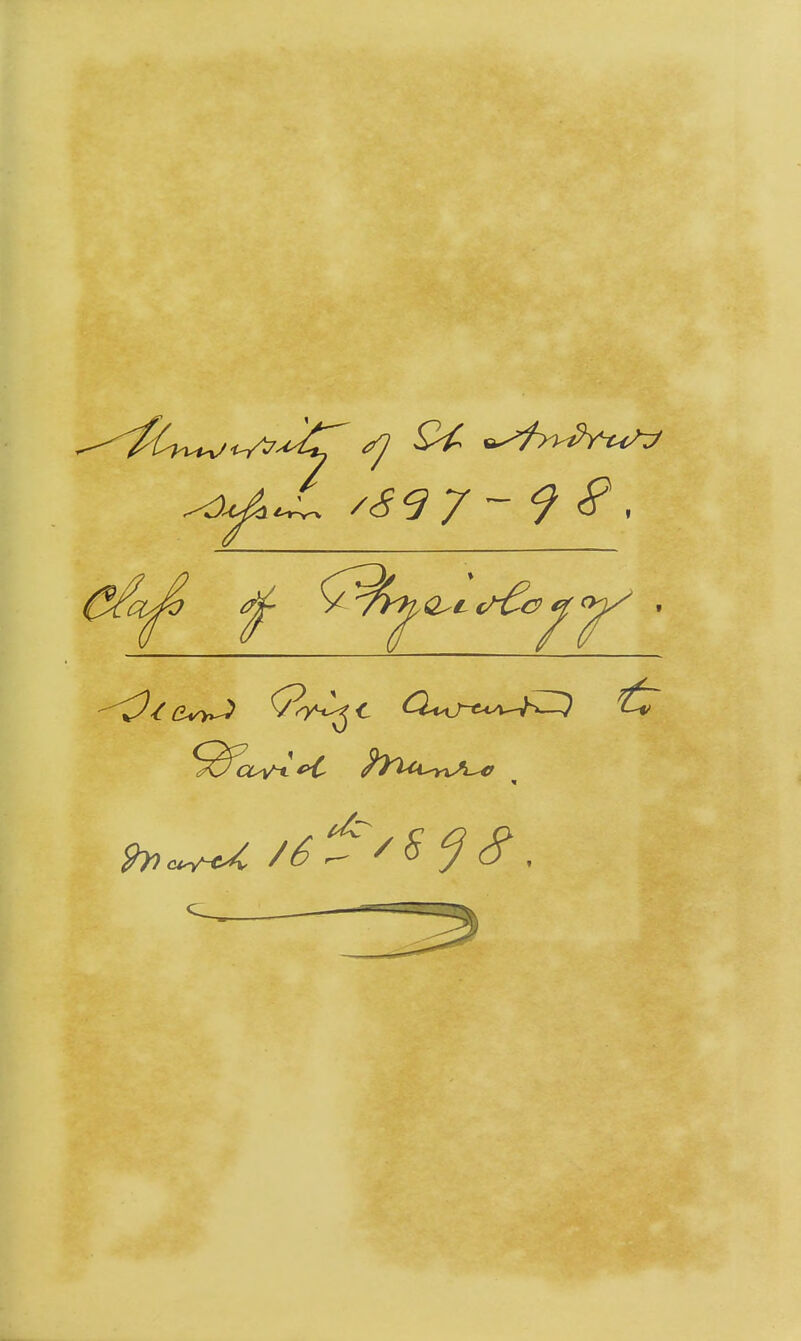 University of St Andrews
Session 1897-98.
Class of Physiology.
Second Prize awarded to
David Munro.
March 16th 1898.